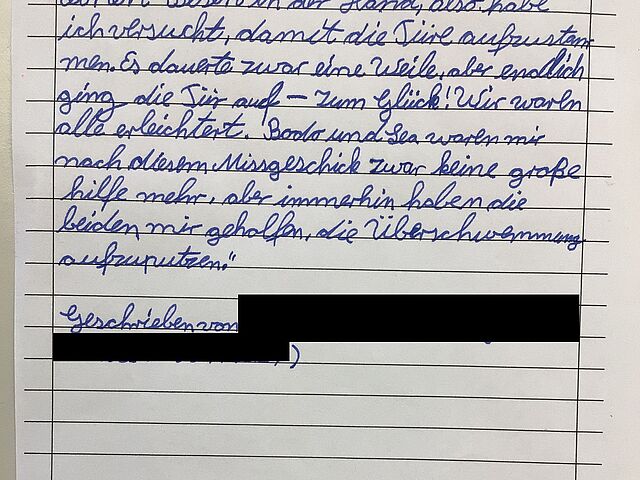 einen Besen in der Hand, also habe
ich versucht, damit die Türe aufzustem
men. Es dauerte zwar eine Weile, aber endlich
ging die Tür auf – zum Glück! Wir waren
alle erleichtert. Bodo und Lea waren mir
nach diesem Missgeschick zwar keine große
hilfe mehr, aber immerhin haben die
beiden mir geholfen, die Überschwemmung
aufzuputzen."
Geschrieben von
)